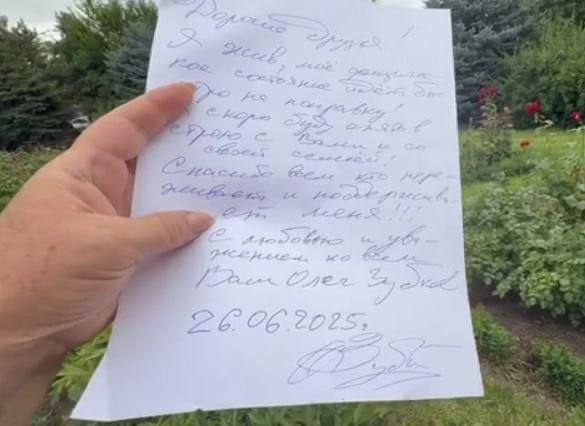 Дорогие друзья!
Я жив, моё
кое состояние идёт быс
тро на поправку!
Я скоро буду опять в
строю с Вами и со
своей семьёй!
Спасибо всем кто пере-
живает и поддержива-
ет меня!!!
С любовью и ува-
жением ко всем
Ваш Олег Зубков
26.06.2025г